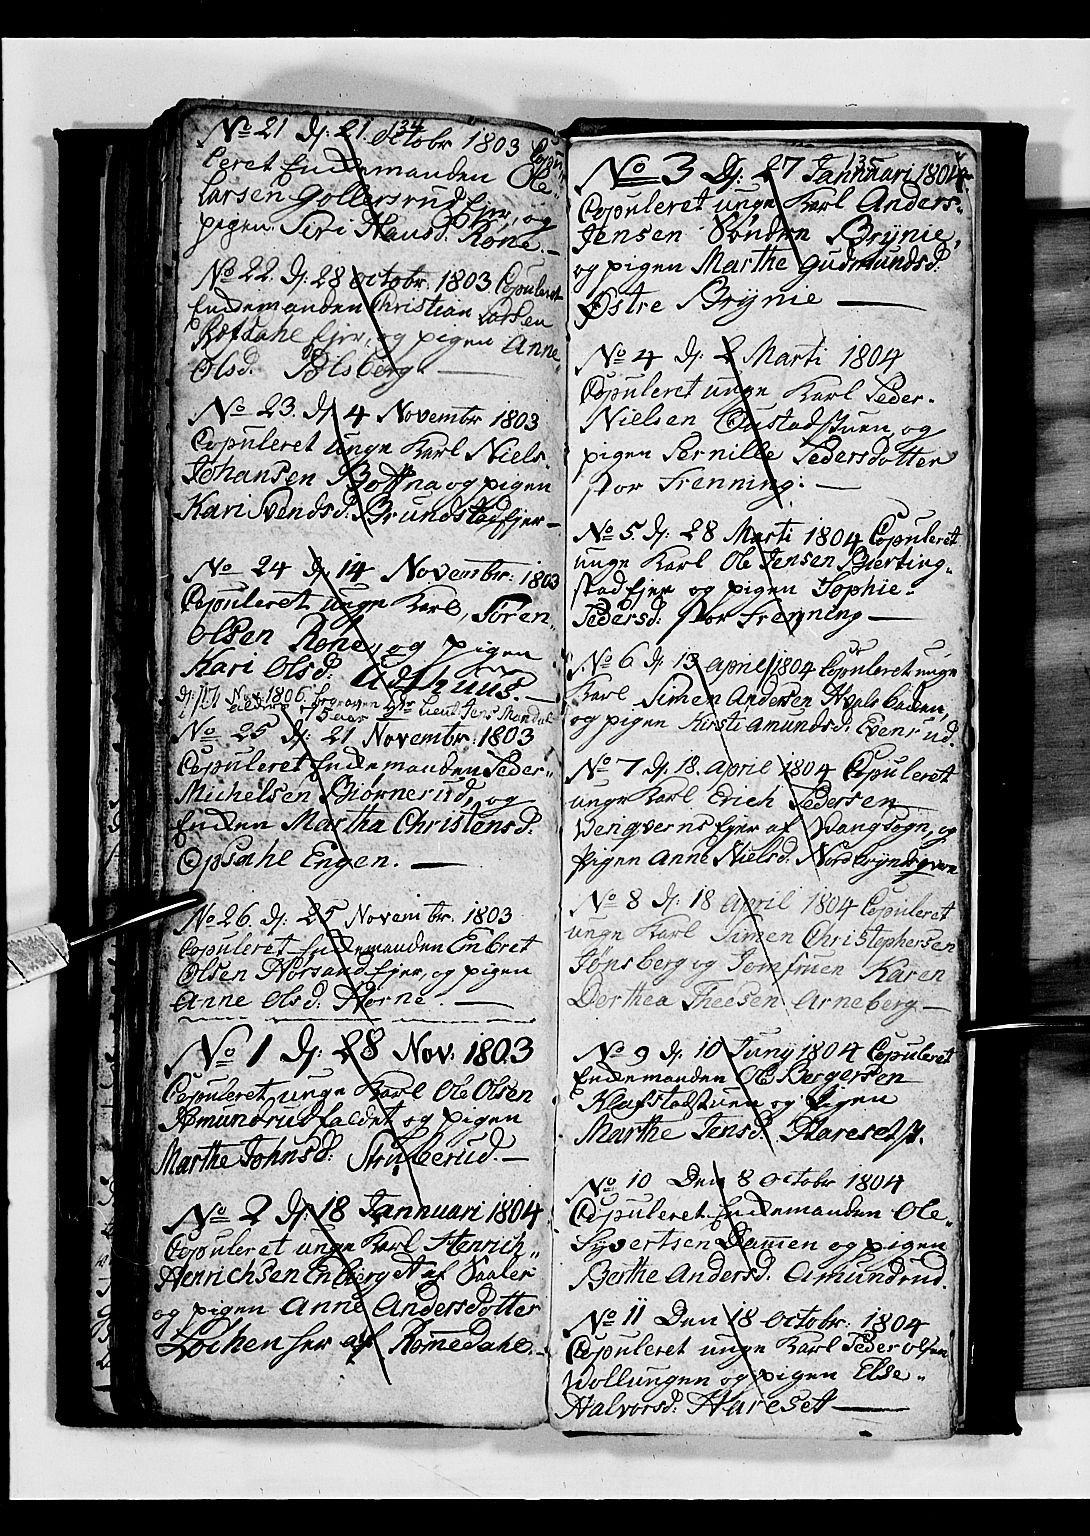 134
No 21 dj: 21. octobr 1803 Copu-
leret Enckemanden Ole
Larsen Gollersrud Ejer, og
pigen Siri Hansd. Røne. —
No 22. dj: 28 octobr. 1803 Copuleret
Enckemanden Christian Larsen
Ejer, og pigen Anne
Olsd. Pølsberg —
No 23. dj 4 Novembr 1803
Copuleret unge Karl Niels
Johansen Bottna og pigen
Kari Svendsd: Brundstad Ejer —
No 24 dj. 14 Novembr: 1803
Copuleret unge Karl, Søren
Olsen Røne, og pigen
Kari Olsd: Udthuus. —
dj: 17 Nov 1806. begraven Hr Lieut Jens
5 aar
No 25 dj: 21 Novembr: 1803
Copuleret Enckemanden Peder
Michelsen Biørnerud, og
Encken Martha Christensd.
Opsahl Engen. —
No 26. dj: 25 Novembr. 1803
Copuleret Enckemanden Enbret
Olsen Horsand Ejer, og pigen
Anne Olsd. Horne. —
No 1 dj: 28 Nov: 1803
Copuleret unge Karl Ole Olsen
Amundrudfaldet og pigen
Marthe Johnsd: Struberud. —
No 2 dj: 18 Jannuari 1804
Copuleret unge Karl Henrich
Henrichsen Enberget af Vaaler
og pigen Anne Andersdotter
Løchen her af Romedahl. —
135
No 3 dj. 27 Jannuari 1804
Copuleret unge Karl Anders
Jensen Søndre Brynie,
og pigen Marthe Gudmundsd.
Østre Brynie —
No 4 dj: 2 Marti 1804
Copuleret unge Karl Peder
Nielsen Austadstuen, og
pigen Pernille Pedersdotter
stor Frenning: —
No 5 dj: 28 Marti 1804 Copuleret
unge Karl Ole Jensen Bierting-
stad Ejer og pigen Sophie
Pedersd: stor Frenning —
No 6 dj 13 april 1804 Copuleret unge
Karl Simen Andersen Hvalsbacken,
og pigen Kirsti Amundsd: Evensrud.
No 7 dj. 18. april 1804 Copuleret
unge Karl Erich Pedersen
Ejer af Vangsogn, og
pigen Anne Nielsd. Nordbryndsqvern
No 8 dj: 18 april 1804 Copuleret
unge Karl Simen Christophersen
Jønsberg og Jomfruen Karen
Dorthea Theesen Arneberg —
No 9 dj: 10 Juny 1804 Copuleret
Enckemanden Ole Bergersen
Klafstadstuen og pigen
Marthe Jensd.
No 10 Den 8 octobr 1804
Copuleret Enckemanden Ole
Syvertsen Dammen og pigen
Berthe Andersd. Amundrud.
No 11 Den 18 octobr: 1804
Copuleret unge Karl Peder olsen
Wollungen og pigen Else
Halvorsd: Hareset —